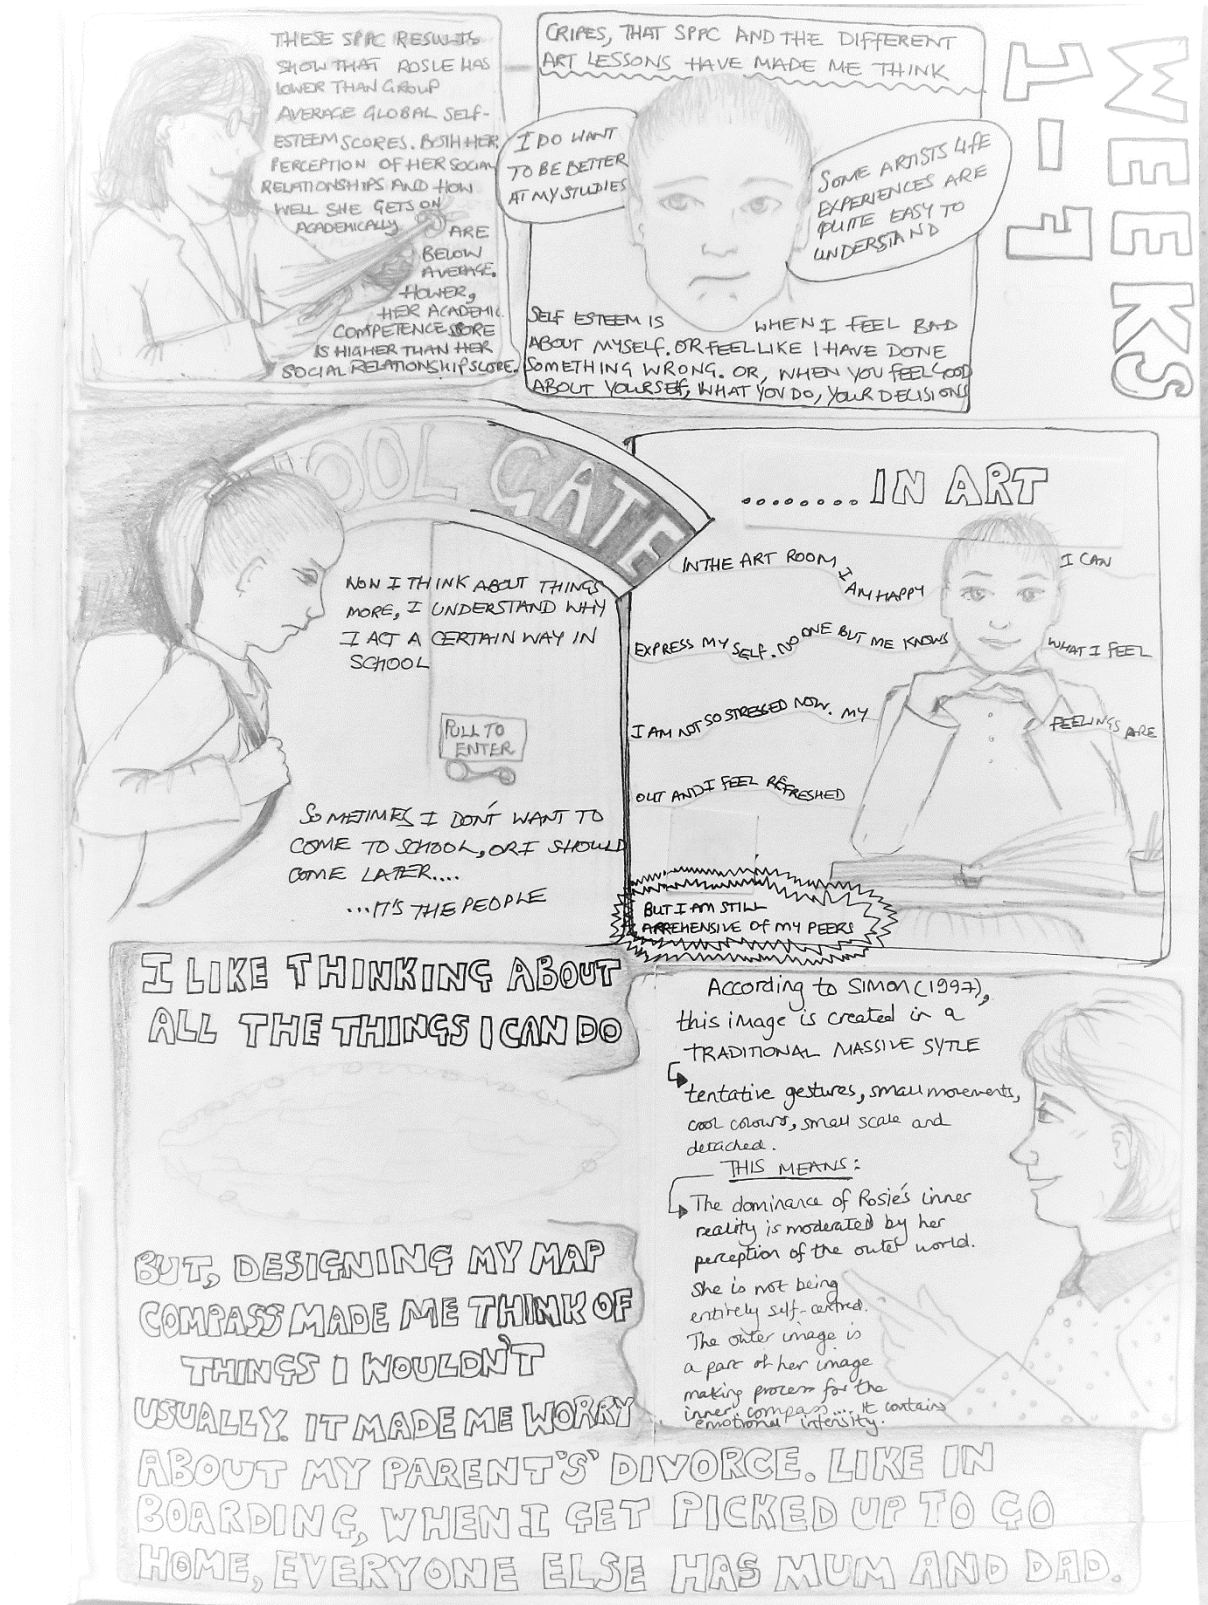 WEEKS
1-7
THESE SPPC RESULTS
SHOW THAT ROSIE HAS
LOWER THAN GROUP
AVERAGE GLOBAL SELF-
ESTEEM SCORES. BOTH HER
PERCEPTION OF HER SOCIAL
RELATIONSHIPS AND HOW
WELL SHE GETS ON
ACADEMICALLY
ARE
BELOW
AVERAGE.
HOWER,
HER ACADEMIC
COMPETENCE SCORE
IS HIGHER THAN HER
SOCIAL RELATIONSHIP SCORE.
CRIPES, THAT SPPC AND THE DIFFERENT
ART LESSONS HAVE MADE ME THINK
I DO WANT
TO BE BETTER
AT MY STUDIES
SOME ARTISTS LIFE
EXPERIENCES ARE
QUITE EASY TO
UNDERSTAND
SELF ESTEEM IS WHEN I FEEL BAD
ABOUT MYSELF. OR FEEL LIKE I HAVE DONE
SOMETHING WRONG. OR, WHEN YOU FEEL GOOD
ABOUT YOURSELF, WHAT YOU DO, YOUR DECISIONS
HOOL GATE
NON I THINK ABOUT THINGS
MORE, I UNDERSTAND WHY
I ACT A CERTAIN WAY IN
SCHOOL
PULL TO
ENTER
SOMETIMES I DON'T WANT TO
COME TO SCHOOL, OR I SHOULD
COME LATER....
...IT'S THE PEOPLE
........IN ART
IN THE ART ROOM I AM HAPPY I CAN
EXPRESS MY SELF. NO ONE BUT ME KNOWS WHAT I FEEL
I AM NOT SO STRESSED NOW. MY FEELINGS ARE
OUT AND I FEEL REFRESHED
BUT I AM STILL
APREHENSIVE OF MY PEERS
I LIKE THINKING ABOUT
ALL THE THINGS I CAN DO
BUT, DESIGNING MY MAP
COMPASS MADE ME THINK OF
THINGS I WOULDN'T
USUALLY. IT MADE ME WORRY
ABOUT MY PARENT'S' DIVORCE. LIKE IN
BOARDING, WHEN I GET PICKED UP TO GO
HOME, EVERYONE ELSE HAS MUM AND DAD.
According to SIMON (1997),
this image is created in a
TRADITIONAL MASSIVE SYTLE
tentative gestures, small movements,
cool colours, small scale and
detached.
THIS MEANS:
The dominance of Rosie's inner
reality is moderated by her
perception of the outer world.
She is not being
entirely self-centred.
The outer image is
a part of her image
making process for the
inner compass.... It contains
emotional intensity.